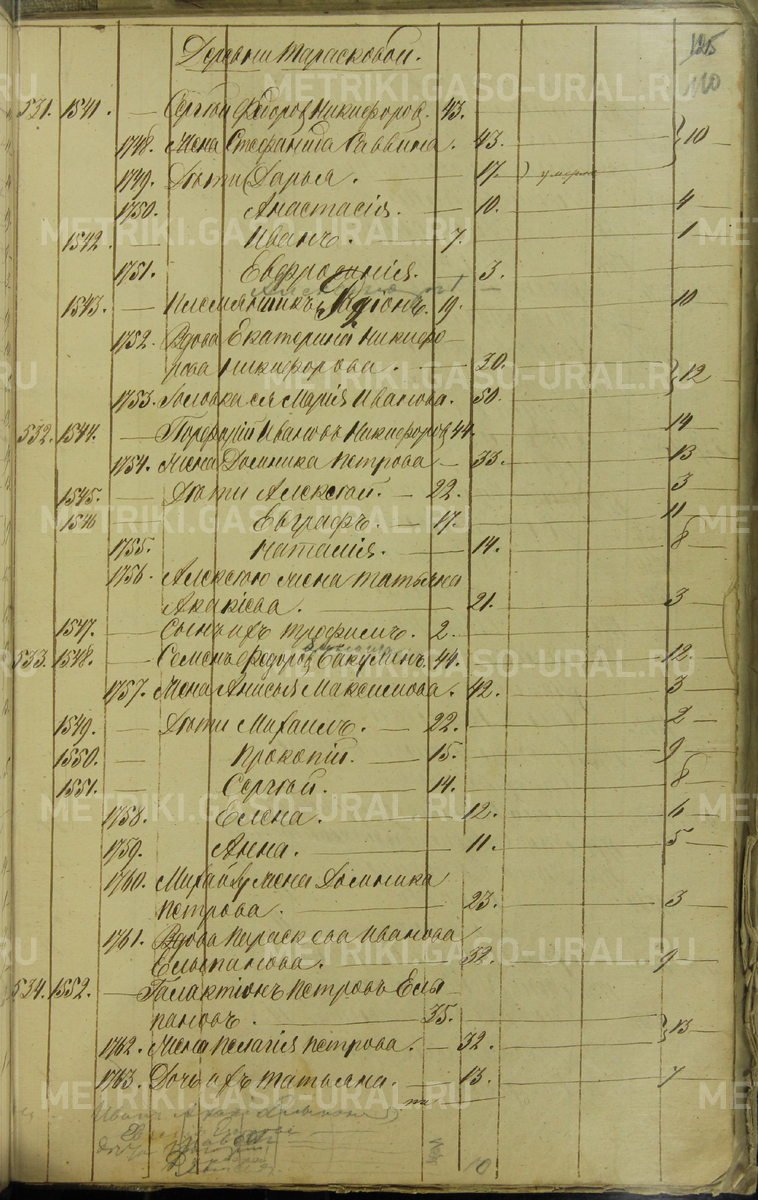 Деревни Тарасковой. 125
110
531. 1541. — Сергѣй Ѳедоровъ Никифоровъ. 43.
1748. Жена Стефанида Саввина. 43. 10
1749. Дѣти Дарья. — 17. умерла
1750. Анастасія. — 10. 4
1542. — Иванъ. — 7. 1
1751. Евфросинія. 3.
1543. — Племянникъ Родіонъ. 19. 10
1752. Вдова Екатерина Никифо-
рова Никифорова. — 30.
12
1753. Золовка ея Марія Иванова. 50.
532. 1544. — Порфирій Ивановъ Никифоровъ 44. 14
1754. Жена Домника Петрова — 33. 13
1545. — Дѣти Алексѣй. — 22. 3
1546 Евграфъ. — 17. 11
1755. Наталія. — 14. 8
1756. Алексѣю жена Татьяна
Акакіева. — 21. 3
1547. — Сынъ ихъ Трофимъ. 2.
533. 1548. — Семенъ Ѳедоровъ Викулинъ. 44. 12
1757. Жена Анисья Максимова. 42. 3
1549. — Дѣти Михаилъ. — 22. 2
1550. — Прокопій. — 15. 9
1551. Сергѣй. — 14. 8
1758. Елена. — 12. 6
1759. Анна. — 11. 5
1760. Михаилу жена Домника
Петрова. — 23. 3
1761. Вдова Параскева Иванова
Елыпанова. — 32. 9
534. 1552. — Галактіонъ Петровъ Елы
пановъ. — 35.
13
1762. Жена Пелагія Петрова. — 32.
1763. Дочь ихъ Татьяна. — 13. 7
Иванъ
10
METRIKI.GASO-URAL.RU